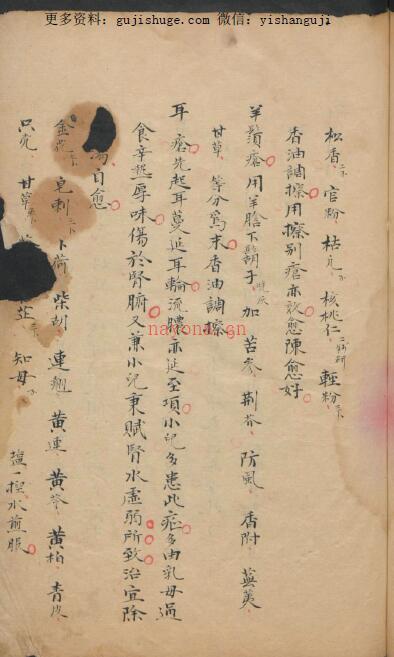 更多资料：gujishuge.com 微信：yishanguji
松香 官粉 枯凡 核桃仁 輕粉
香油調擦用擦别瘡亦效愈陳愈好
羊鬍瘡用羊胳下鬍子 加 苦参 荆芥 防風 香附 蕪荑
甘草 等分爲末香油調擦
耳瘡先起耳蔓延耳輪流膿亦延至項小兒多患此症多由乳母過
食辛熱厚味傷於腎腑又兼小兒秉賦腎水虚弱所致治宜除
湯自愈
金 皂刺 卜荷 柴胡 連翹 黄連 黄芩 黄柏 青皮
只壳 甘草 知母 塩一撮水煎服
national.cn